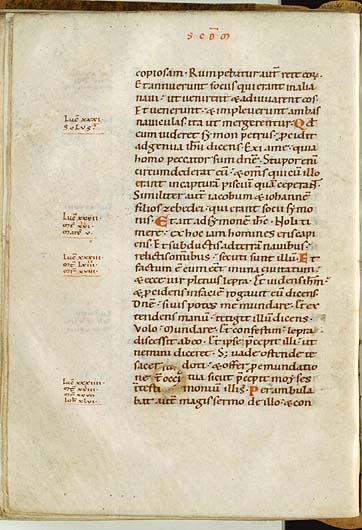 S · C D M
copiosam. Rumpebatur aut rete eoꝝ.
Et annuerunt sociis qui erant in alia
naui · ut uenirent & adiuuarent eos.
Et uenerunt · & impleuerunt ambas
nauiculas ita ut mergerentur. Qd
cum uideret symon petrus, pcidit
ad genua ihu dicens. Exi a me · quia
homo peccator sum dne. Stupor eni
circumdederat eu · & oms qui cu illo
erant in captura pisciu qua ceperant.
Similiter aut iacobum & iohannem
filios zebedei · qui erant socii symo
nis. Et ait ad symone ihs. Noli ti
mere · ex hoc iam homines eris capi
ens. Et subductis ad terra nauibus
relictis omnibus · secuti sunt illu. Et
factum e cum eet in una ciuitatum ·
& ecce uir plenus lepra. Et uidens ihm
& pcidens in facie rogauit eu dicens.
Dne · si uis potes me mundare. Et ex
tendens manu · tetigit illu dicens.
Volo · mundare. Et confestim lepra
discessit ab eo. Et ipse pcepit illi · ut
nemini diceret. S; uade ostende te
sacerdoti · & offer p emundatio
ne tua sicut pcepit moyses
in testimoniu illis. Perambula
bat aut magis sermo de illo · & con
Luc xxxi
Solus
Luc xxxii
Luc xxxiii
Luc xxxiiii